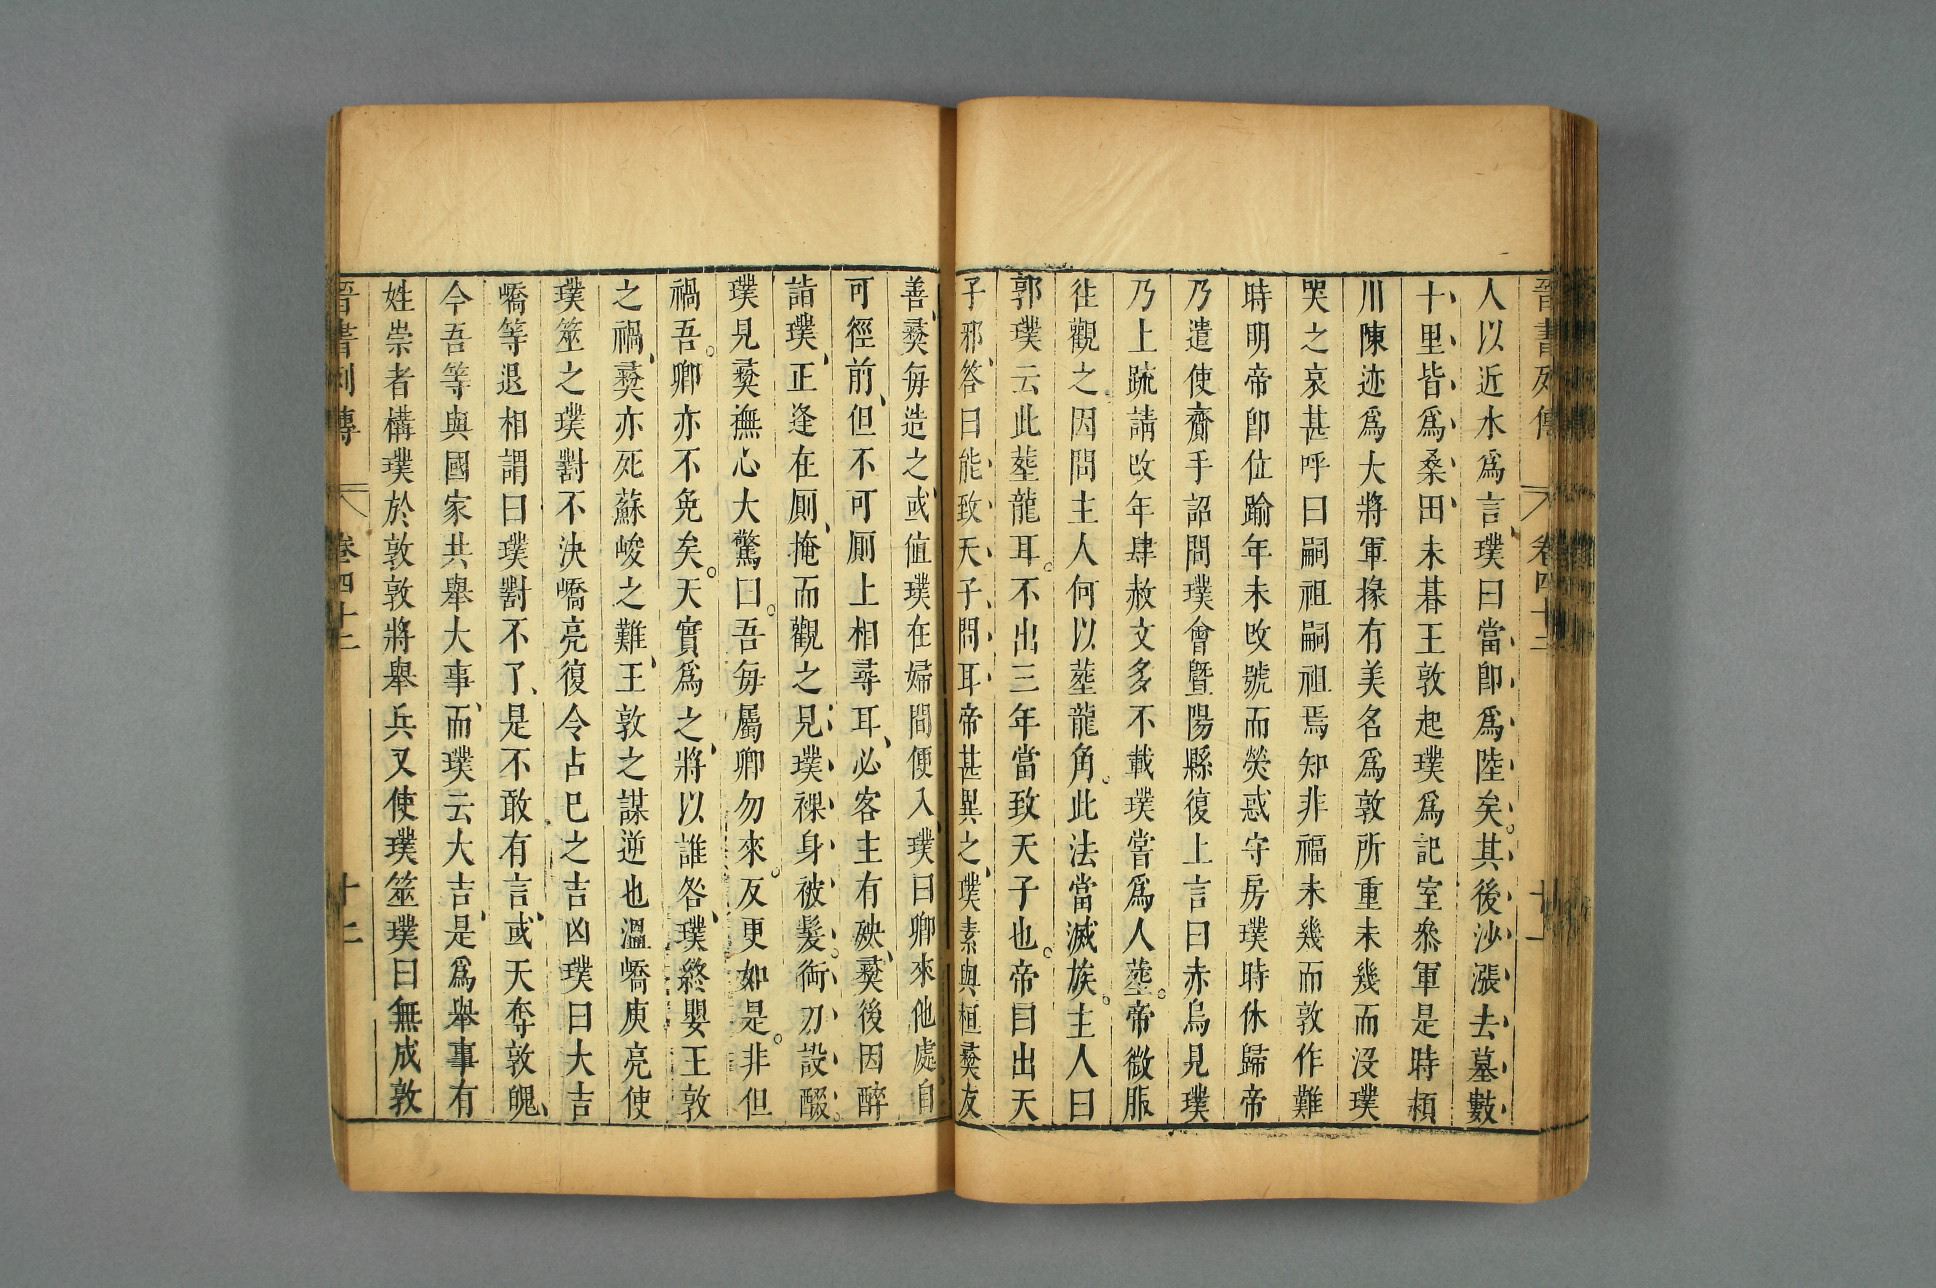 晉書列傳 卷四十二 十一
人以近水爲言璞曰當卽爲陸矣其後沙漲去墓數
十里皆爲桑田未朞王敦起璞爲記室參軍是時潁
川陳述爲大將軍掾有美名爲敦所重未幾而沒璞
哭之哀甚呼曰嗣祖嗣祖焉知非福未幾而敦作難
時明帝卽位踰年未改號而熒惑守房璞時休歸帝
乃遣使齎手詔問璞會暨陽縣復上言曰赤烏見璞
乃上疏請改年肆赦文多不載璞嘗爲人葬帝微服
往觀之因問主人何以葬龍角此法當滅族主人曰
郭璞云此葬龍耳不出三年當致天子也帝曰出天
子邪答曰能致天子問耳帝甚異之璞素與桓彝友
善彝每造之或值璞在婦間便入璞曰卿來他處自
可徑前但不可厠上相尋耳必客主有殃彝後因醉
詣璞正逢在厠掩而觀之見璞裸身被髮銜刀設醊
璞見彝撫心大驚曰吾每屬卿勿來反更如是非但
禍吾卿亦不免矣天實爲之將以誰咎璞終嬰王敦
之禍彝亦死蘇峻之難王敦之謀逆也溫嶠庾亮使
璞筮之璞對不決嶠亮復令占已之吉凶璞曰大吉
嶠等退相謂曰璞對不了是不敢有言或天奪敦魄
今吾等與國家共舉大事而璞云大吉是爲舉事有
姓崇者構璞於敦敦將舉兵又使璞筮璞曰無成敦
晉書列傳 卷四十二 十二